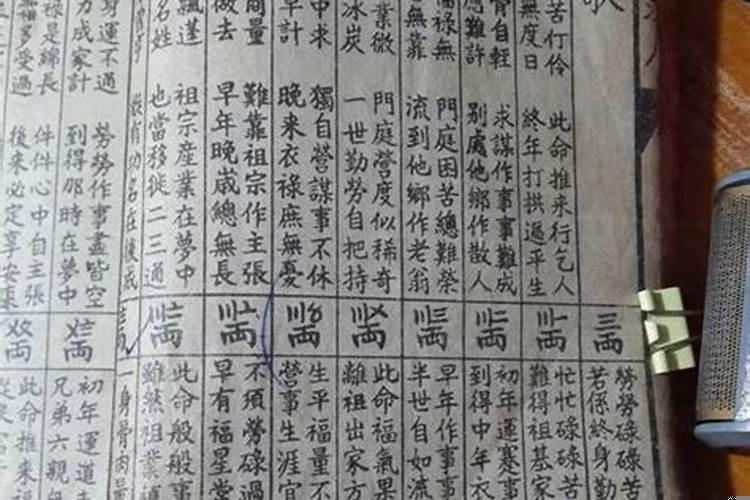 苦仃伶　此命推来行乞人
無度日　終年打拱過平生
骨自輕　求謀作事事難成
應難許　别處他鄉作散人
福禄無　門庭困苦總難榮
無靠　流到他鄉作老翁
業微　門庭營度似稀奇
冰炭　一世勤勞自把持
中求　獨自營謀事不休
早計　晚来衣禄庶無憂
商量　難靠祖宗作主張
做去　早年晚歲總無長
飄蓬　祖宗產業在夢中
名姓　也當移徙二三通
身運不通　勞勞作事盡皆空
力成家計　到得那時在夢中
禄是綿長　件件心中自主張
多受過　後來必定享安
三両
勞勞碌碌苦
若係終身勤
忙忙碌碌苦
難得祖基家
初年運蹇事
到得中年衣
早年作事事
半世自如流
此命福氣果
離祖出家方
生平福量不
營事生涯宜
不須勞碌過
早有福星常
此命般般事
雖然祖業
一身骨肉
初年運道
兄弟六親
此命推来福